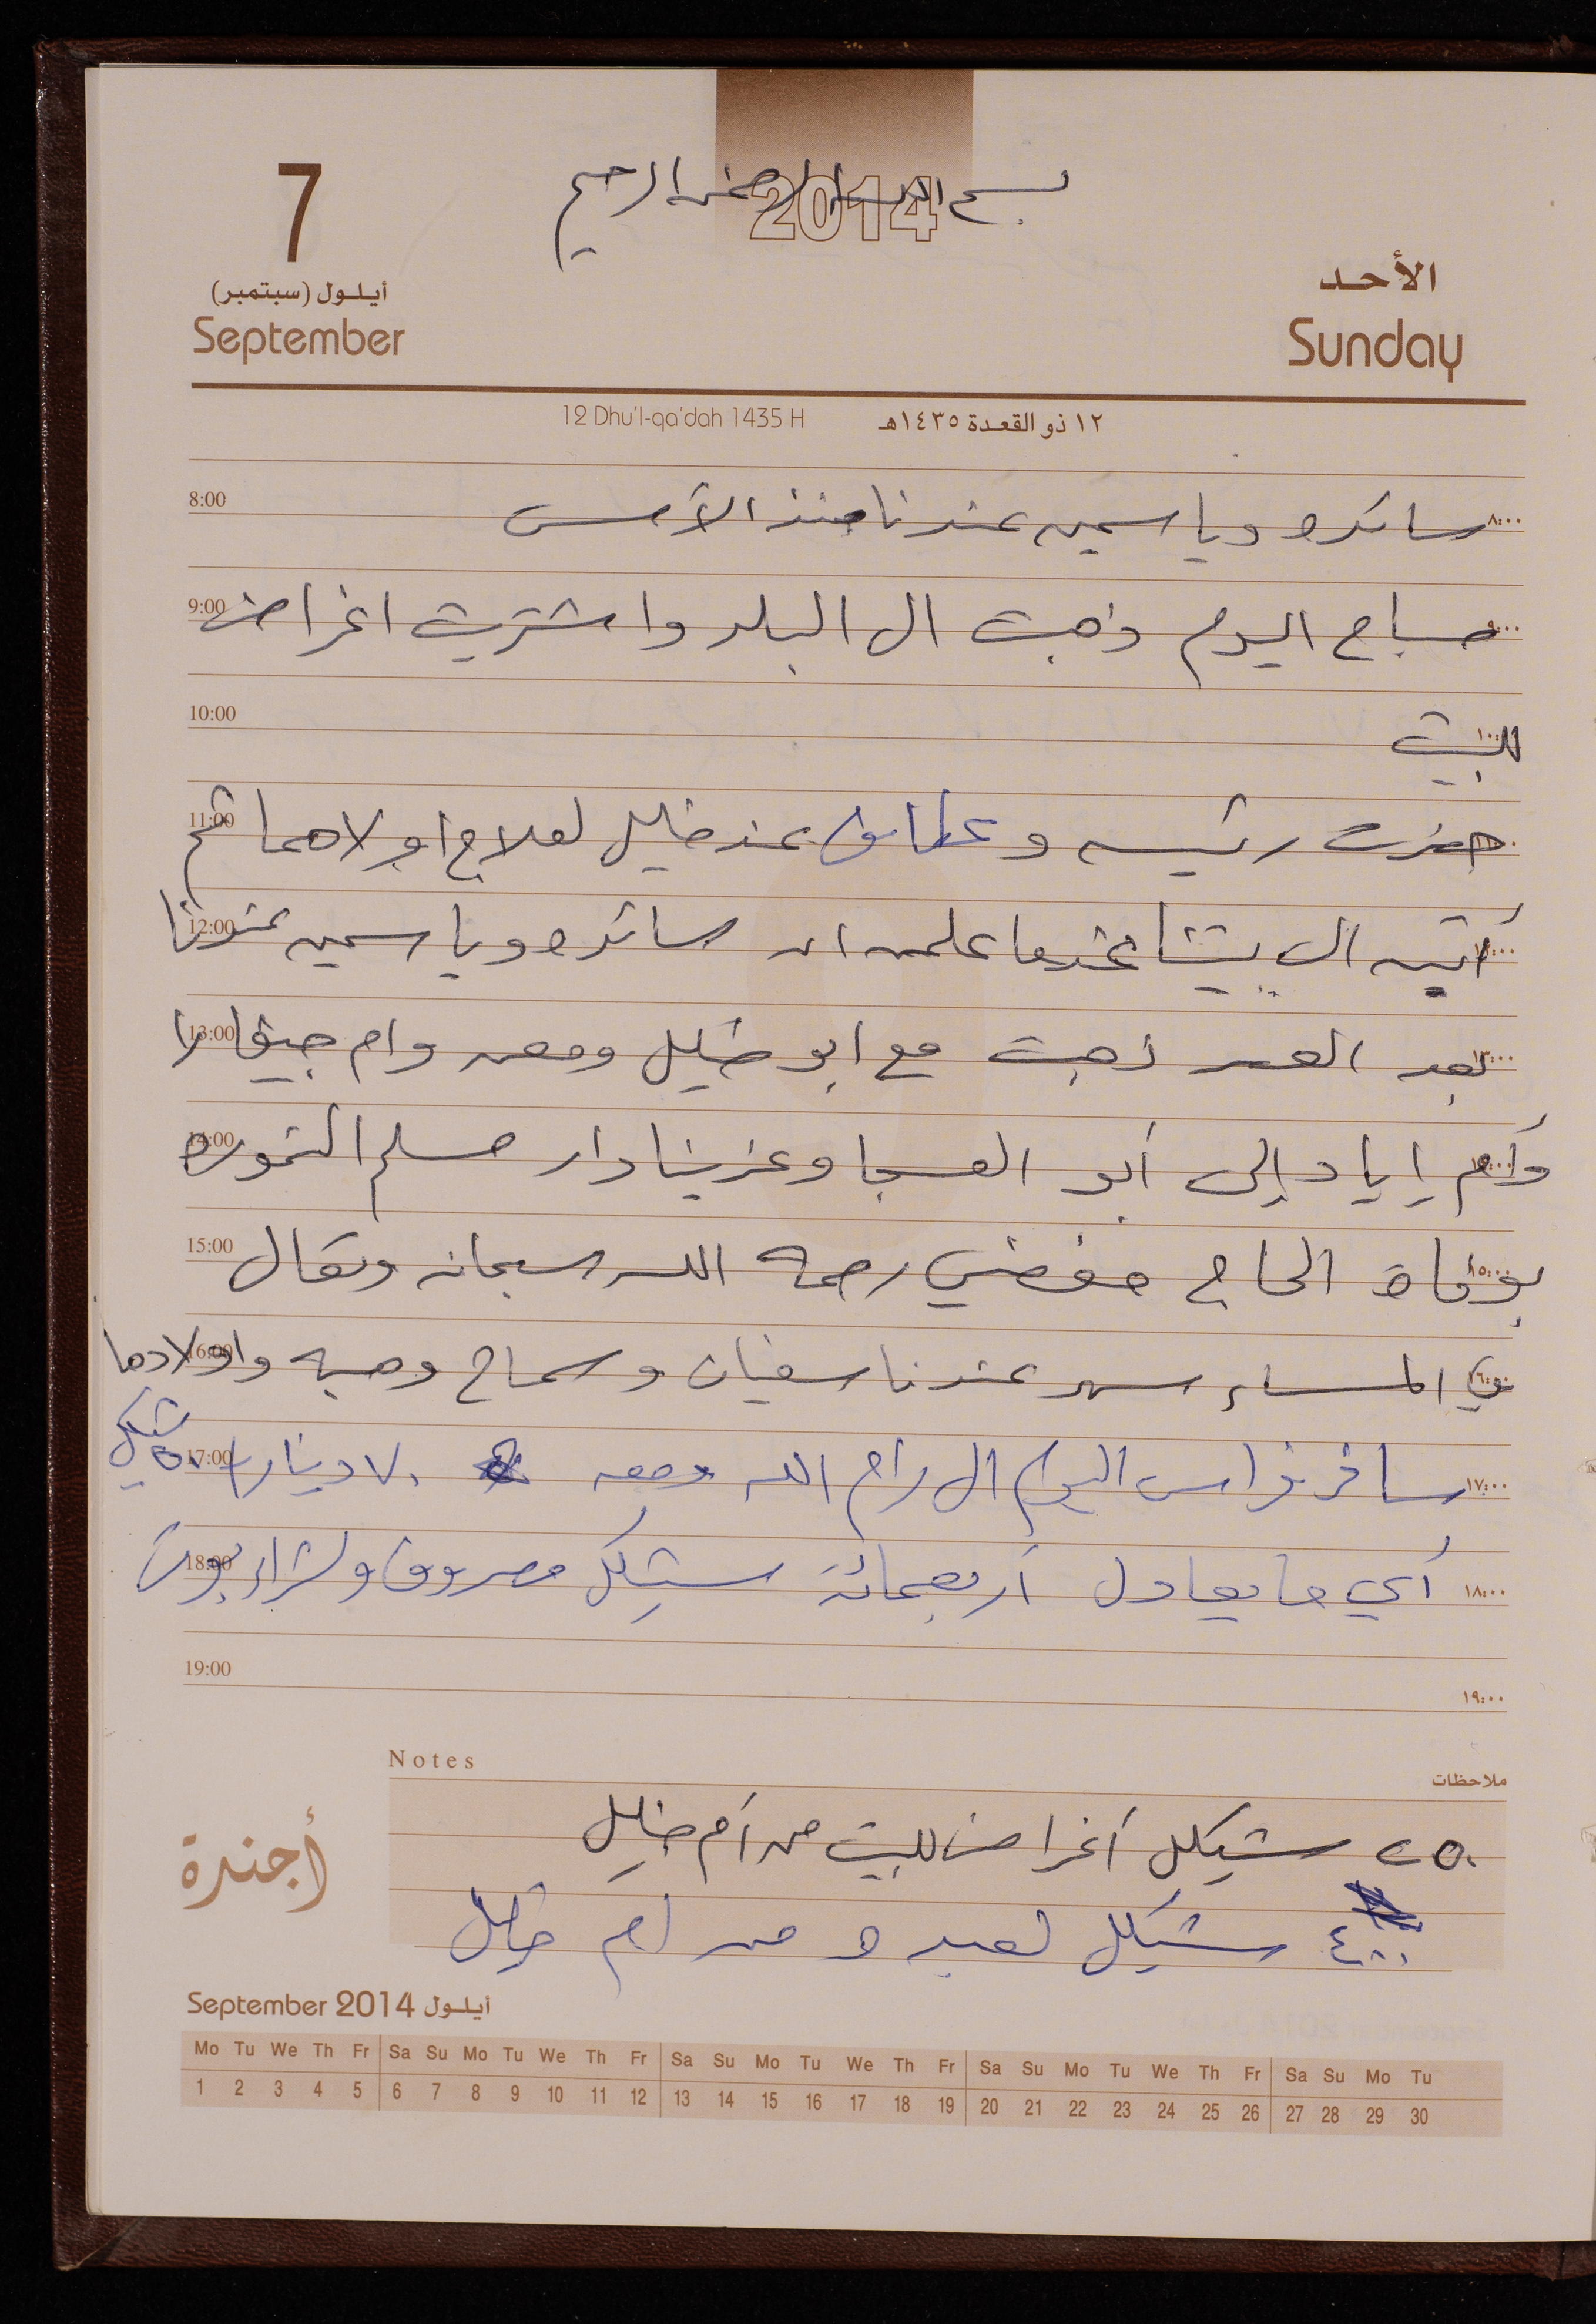 2014
بسم الله الرحمن الرحيم
7
أيلول (سبتمبر)
September
الأحد
Sunday
12 Dhu'l-qa'dah 1435 H
١٢ ذو القعدة ١٤٣٥هـ
8:00 سائده وياسمين عندنا منذ الأمس ٨:٠٠
9:00 صباح اليوم ذهبت الى البلد واشتريت اغراض
10:00 للبيت ١٠:٠٠
11:00 حضرت رئيسه و عند خليل لعلاج اولادهما ثم
12:00 أتين الى بيتنا عندما علمن ان سائده وياسمين عندنا
13:00 بعد العصر ذهبت مع ابو خليل ومعن وام جيفارا ١٣:٠٠
14:00 وأم إياد إلى أبو العسجا وعزينا دار مسلم النموره
15:00 بوفاة الحاج رحمه الله سبحانه وتعالى ١٥:٠٠
16:00 في المساء سهر عندنا سفيان وسماح وهبه واولادها ١٦:٠٠
17:00 سافر فراس اليوم الى رام الله ومعه ٧٠ دينار + ٥٠ شيكل ١٧:٠٠
18:00 أي ما يعادل أربعمائة شيكل مصروف ولشراء بوت ١٨:٠٠
19:00 ١٩:٠٠
Notes ملاحظات
٢٥٠ شيكل أغراض للبيت من أم خليل
٤٠٠ شيكل لعبده من أم خليل
أجندة
September 2014 أيلول
Mo Tu We Th Fr Sa Su Mo Tu We Th Fr Sa Su Mo Tu We Th Fr Sa Su Mo Tu We Th Fr Sa Su Mo Tu
1 2 3 4 5 6 7 8 9 10 11 12 13 14 15 16 17 18 19 20 21 22 23 24 25 26 27 28 29 30